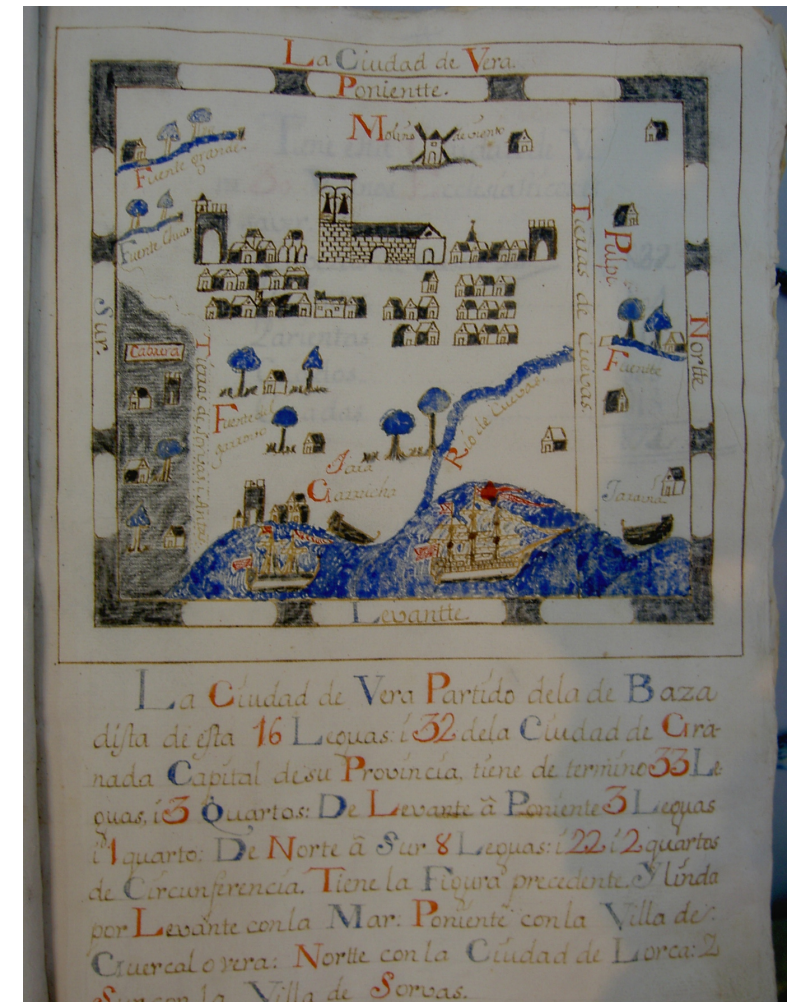 La Ciudad de Vera.
Ponientte.
Molino de viento
Fuente grande
Fuente Chica
Tierras de Cuevas.
Pulpi
Sur.
Nortte
Cabrera
Fuentte
Fuente del
garrovo
Rio de Cuevas.
Garrucha
Levantte.
La Ciudad de Vera Partido dela de Baza
dista de esta 16 Leguas: i 32 dela Ciudad de Gra-
nada Capital de su Provincia, tiene de termino 33 Le-
guas, i 3 Quartos: De Levante â Poniente 3 Leguas
i 1 quarto: De Norte â Sur 8 Leguas: i 22 i 2 quartos
de Circunferencia. Tiene la Figura precedente. Y linda
por Levante con la Mar: Poniente con la Villa de
Guercal overa: Nortte con la Ciudad de Lorca: 2
Sur con la Villa de Sorvas.